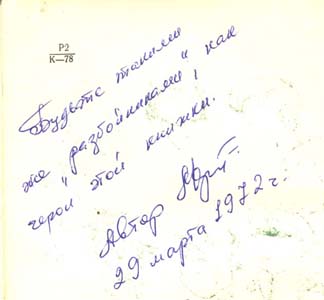 Р2
К—78
Будьте такими
же „разбойниками", как
герои этой книжки.
Автор
29 марта 1972 г.